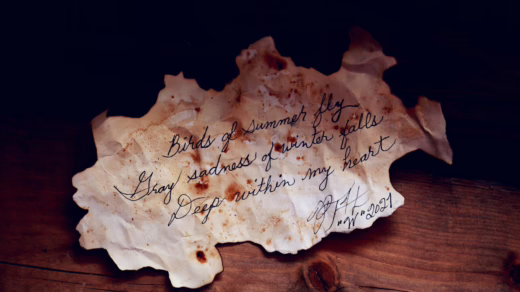 Birds of summer fly
Gray sadness of winter falls
Deep within my heart
2021